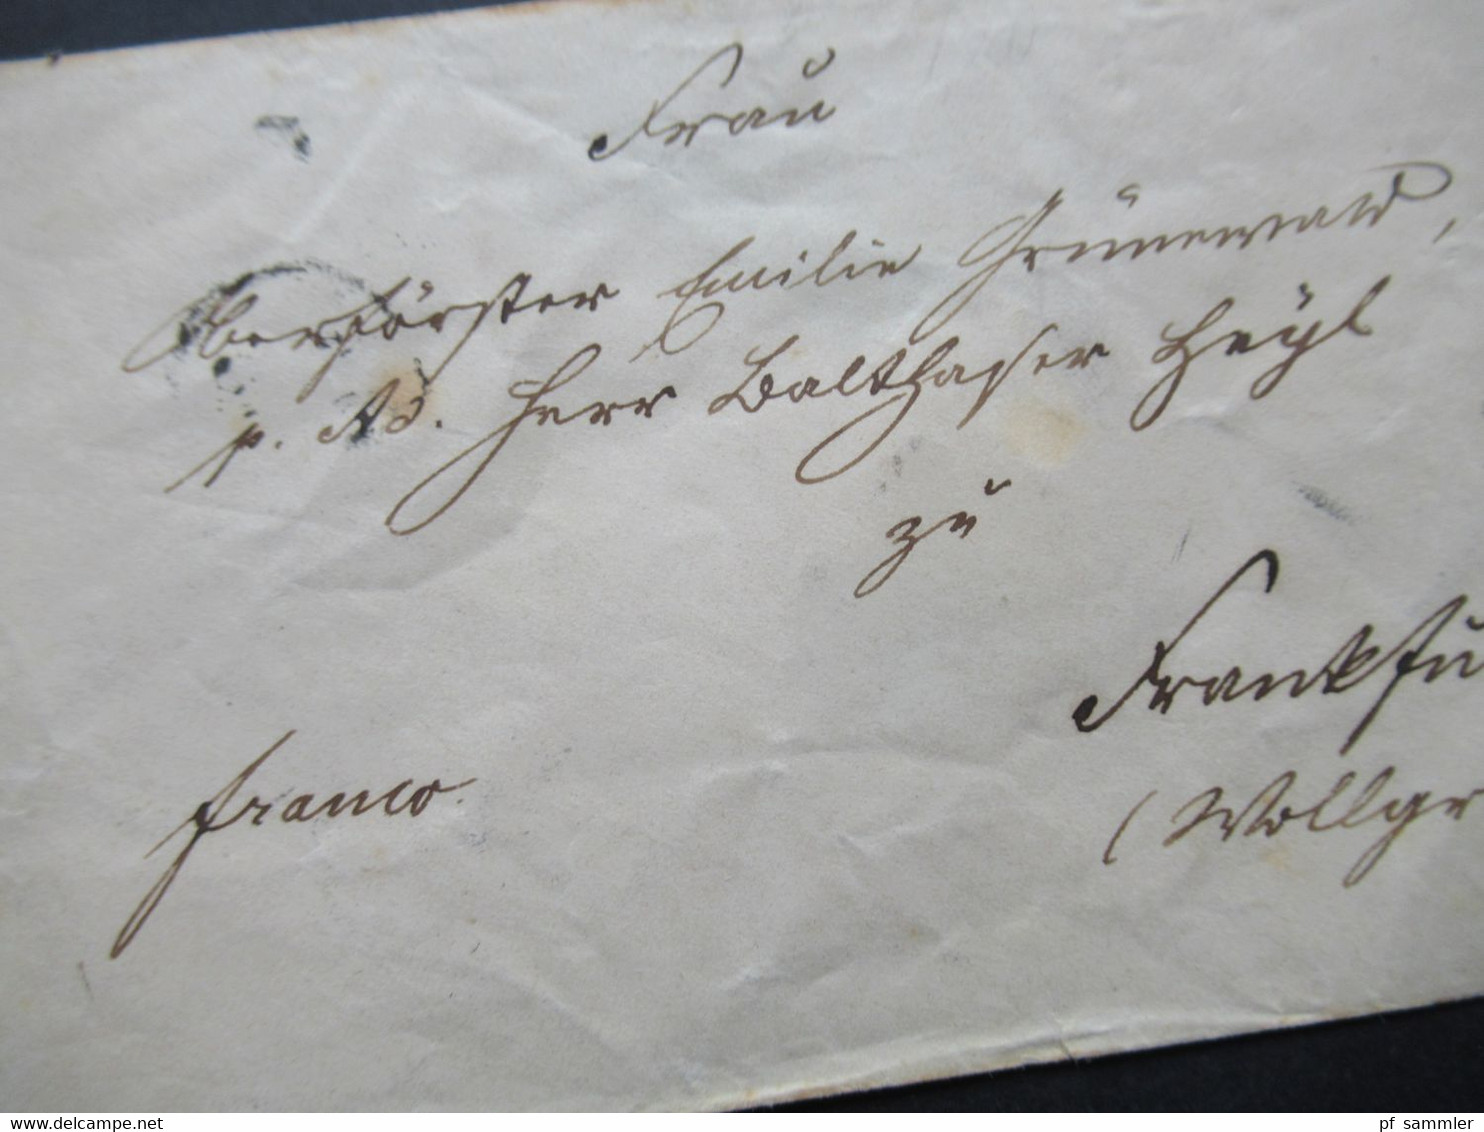 Frau
Oberförster Emilie Grünewald,
p. Ad. Herr Balthaser Heyl
zu
Frankfu
franco
(Wollgr
www.delcampe.net
pf_sammler